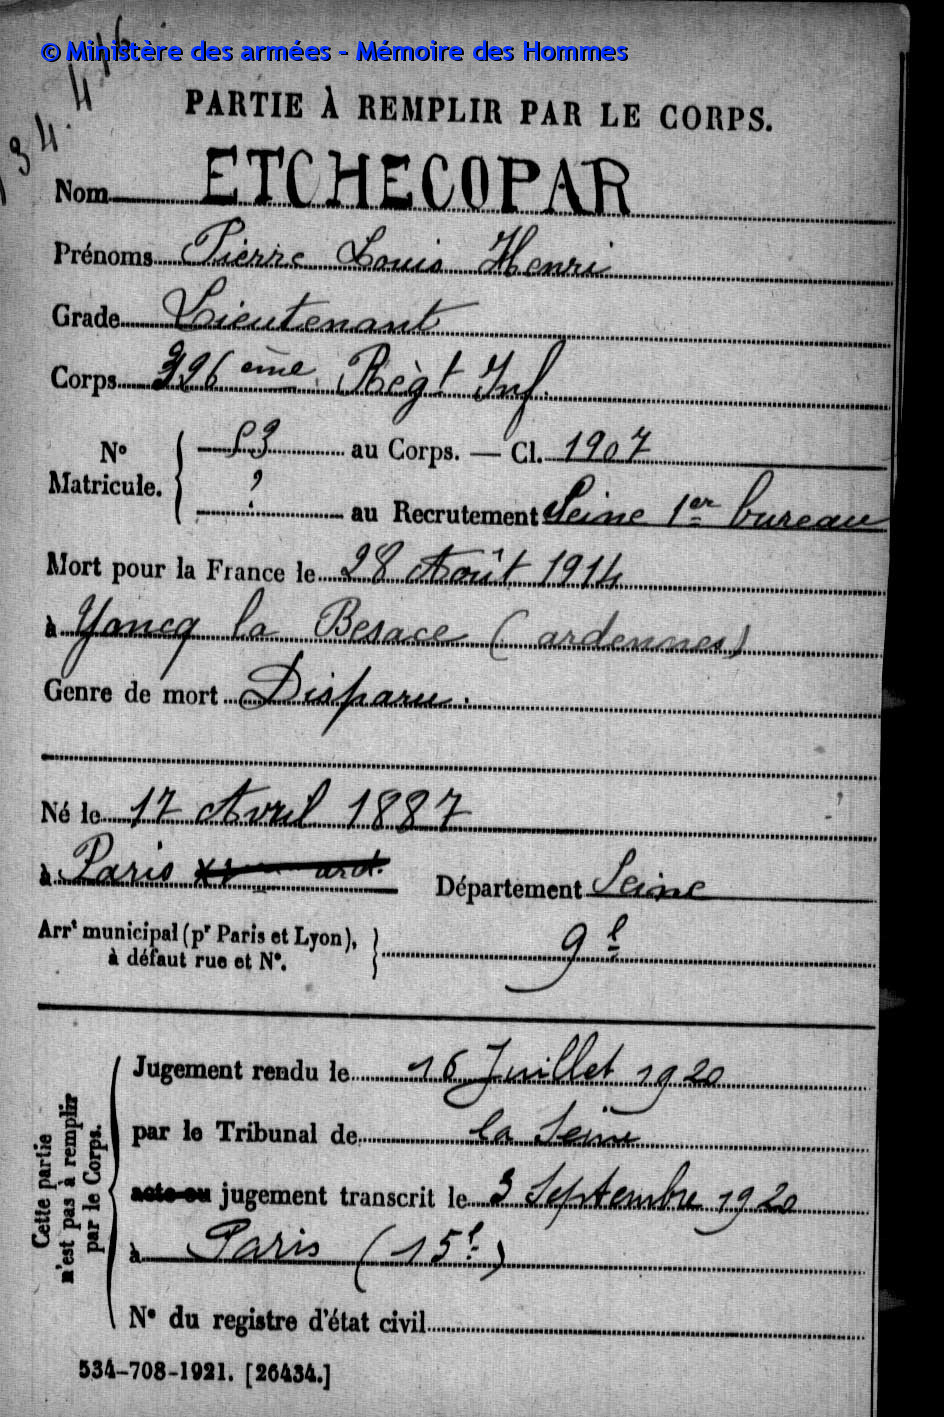 © Ministère des armées - Mémoire des Hommes
134.446
PARTIE À REMPLIR PAR LE CORPS.
Nom ETCHECOPAR
Prénoms Pierre Louis Henri
Grade Lieutenant
Corps 326ème Règt Inf.
N° Matricule. 53 au Corps. — Cl. 1907
? au Recrutement Seine 1er bureau
Mort pour la France le 28 Août 1914
à Yoncq la Besace (ardennes)
Genre de mort Disparu.
Né le 17 Avril 1887
à Paris Département Seine
Arrt municipal (pr Paris et Lyon), à défaut rue et N°. 9e
Jugement rendu le 16 Juillet 1920
par le Tribunal de la Seine
acte ou jugement transcrit le 3 Septembre 1920
à Paris (15e)
N° du registre d'état civil
Cette partie n'est pas à remplir par le Corps.
534-708-1921. [26434.]